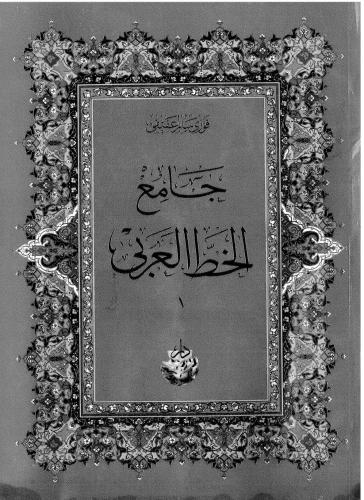 فوزي سالم عفيفي
جامع
الخط العربي
١